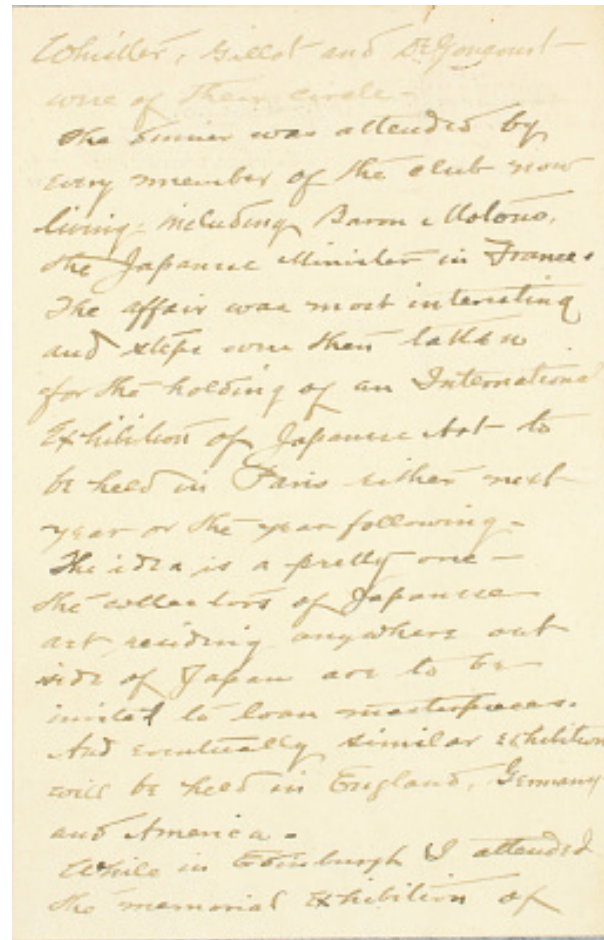 Whistler, Gillot and De Goncourt
were of their circle -
The dinner was attended by
every member of the club now
living - including Baron Motono,
the Japanese Minister in France.
The affair was most interesting
and steps were then taken
for the holding of an International
Exhibition of Japanese Art to
be held in Paris either next
year or the year following -
The idea is a pretty one -
the collectors of Japanese
art residing anywhere out
side of Japan are to be
invited to loan masterpieces.
And eventually similar exhibitions
will be held in England, Germany
and America.
While in Edinburgh I attended
the memorial Exhibition of